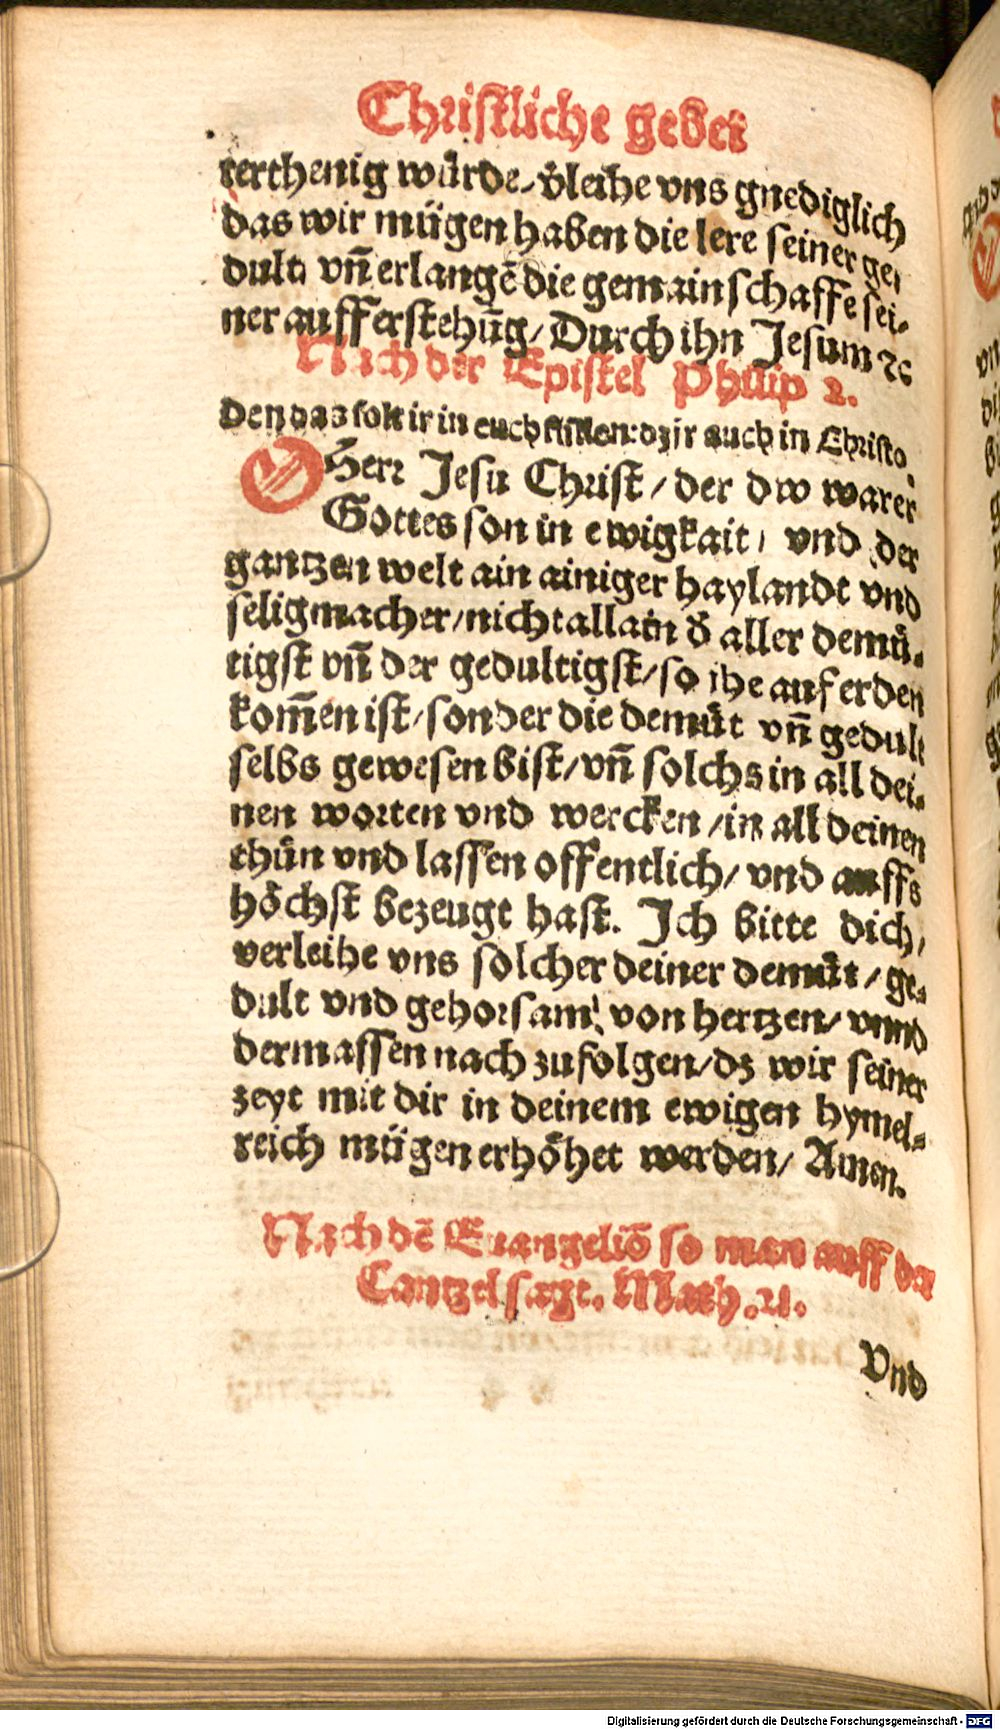 Christliche gebet
terthenig würde/ v̈leihe vns gnediglich
das wir mügen haben die lere seiner ge⸗
dult/ vn̄ erlangē die gemainschaffe sei⸗
ner aufferstehūg/ Durch ihn Jesum ꝛc
Nach der Epistel Philip 2.
Den das solt ir in euch füllen: dz ir auch in Christo.
O Herr Jesu Christ/ der dw warer
Gottes son in ewigkait/ vnd der
gantzen welt ain ainiger haylandt vnd
seligmacher/ nicht allain d̄ aller demuͤ⸗
tigst vn̄ der gedultigst/ so ihe auf erden
kom̄en ist/ sonder die demuͤt vn̄ gedult
selbs gewesen bist/ vn̄ solchs in all dei⸗
nen worten vnd wercken/ in all deinen
thuͤn vnd lassen offentlich/ vnd auffs
hoͤchst bezeugt hast. Ich bitte dich/
verleihe vns solcher deiner demuͤt/ ge⸗
dult vnd gehorsam/ von hertzen/ vnnd
dermassen nach zufolgen/ dz wir seiner
zeyt mit dir in deinem ewigen hymel⸗
reich mügen erhoͤhet werden/ Amen.
Nach dē Euangeliō so man auff der
Cantzel sagt. Math. 21.
Vnd
Digitalisierung gefördert durch die Deutsche Forschungsgemeinschaft - DFG